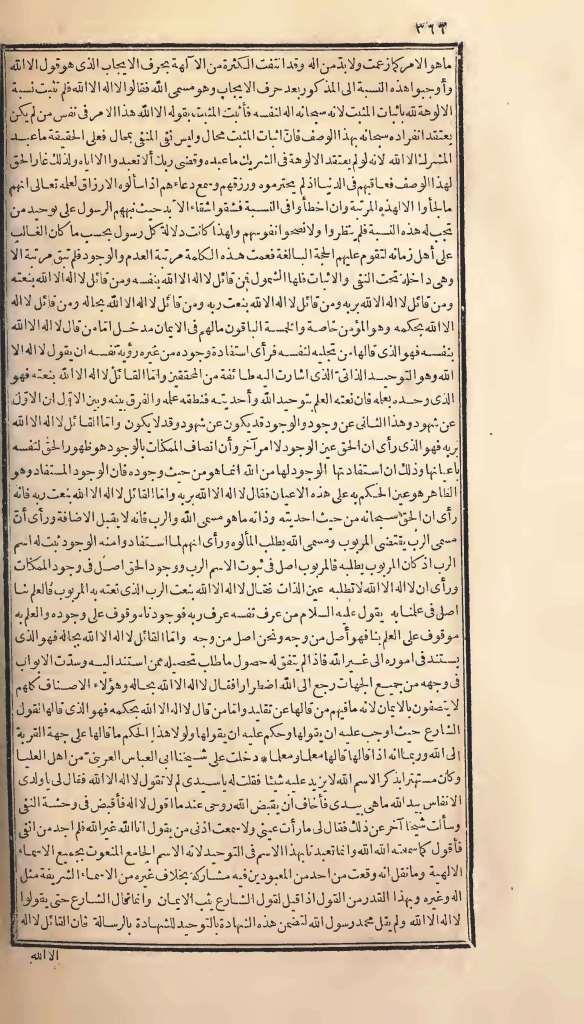 ٣٦٣
ما هو الامر كما زعمت ولا بد من اله وقد انتفت الكثرة من الآلهة بحرف الايجاب الذى هو قول الا الله
وأوجبوا هذه النسبة الى المذكور بعد حرف الايجاب وهو مسمى الله فقالوا لا اله الا الله فلم تثبت نسبة
الالوهة لله باثبات المثبت لانه سبحانه اله لنفسه فأثبت المثبت بقوله الا الله هذا الامر فى نفس من لم يكن
يعتقد انفراده سبحانه بهذا الوصف فان اثبات المثبت محال وليس نفى المنفى بمحال فعلى الحقيقة ما عبد
المشرك الا الله لانه لو لم يعتقد الالوهة فى الشريك ما عبده وقضى ربك ألا تعبدوا الا اياه ولذلك غار الحق
لهذا الوصف فعاقبهم فى الدنيا اذ لم يحترموه ورزقهم وسمع دعاءهم اذا سألوه الارزاق لعلمه تعالى انهم
ما لجأوا الا لهذه المرتبة وان اخطأوا فى النسبة فشقوا شقاء الابد حيث نبههم الرسول على توحيد من
تجب له هذه النسبة فلم ينظروا ولا نصحوا نفوسهم ولهذا كانت دلالة كل رسول بحسب ما كان الغالب
على أهل زمانه لتقوم عليهم الحجة البالغة فعمت هذه الكلمة مرتبة العدم والوجود فلم تبق مرتبة الا
وهى داخلة تحت النفى والاثبات فلها الشمول فمن قائل لا اله الا الله بنفسه ومن قائل لا اله الا الله بنعته
ومن قائل لا اله الا الله بربه ومن قائل لا اله الا الله بنعت ربه ومن قائل لا اله الا الله بحاله ومن قائل لا اله
الا الله بحكمه وهو المؤمن خاصة والخمسة الباقون مالهم فى الايمان مدخل امّا من قال لا اله الا الله
بنفسه فهو الذى قالها من تجليه لنفسه فرأى استفادة وجوده من غيره رؤية نفسه ان يقول لا اله الا
الله وهو التوحيد الذاتى الذى اشارت اليه طائفة من المحققين وامّا القائل لا اله الا الله بنعته فهو
الذى وحده بعلمه فان نعته العلم بتوحيد الله وأحديته فنطقه علمه والفرق بينه وبين الاوّل ان الاوّل
عن شهود وهذا الثانى عن وجود والوجود قد يكون عن شهود وقد لا يكون وامّا القائل لا اله الا الله
بربه فهو الذى رأى ان الحق عين الوجود لا امر آخر وأن اتصاف الممكنات بالوجود هو ظهور الحق لنفسه
بأعيانها وذلك ان استفادتها الوجود لها من الله انما هو من حيث وجوده فان الوجود المستفاد وهو
الظاهر هو عين الحكم به على هذه الاعيان فقال لا اله الا الله بربه وامّا القائل لا اله الا الله بنعت ربه فانه
رأى ان الحق سبحانه من حيث احديته وذاته ما هو مسمى الله والرب فانه لا يقبل الاضافة ورأى أن
مسمى الرب يقتضى المربوب ومسمى الله يطلب المألوه ورأى انهم لما استفادوا منه الوجود ثبت له اسم
الرب اذ كان المربوب يطلبه فالمربوب اصل فى ثبوت الاسم الرب ووجود الحق اصل فى وجود الممكنات
ورأى ان لا اله الا الله لا تطلبه عين الذات فقال لا اله الا الله بنعت الرب الذى نعته به المربوب فالعلم بنا
اصل فى علمنا به يقول عليه السلام من عرف نفسه عرف ربه فوجودنا موقوف على وجوده والعلم به
موقوف على العلم بنا فهو أصل من وجه ونحن اصل من وجه وامّا القائل لا اله الا الله بحاله فهو الذى
يستند فى اموره الى غير الله فاذا لم يتفق له حصول ما طلب تحصيله ممن استند اليه وسدّت الابواب
فى وجهه من جميع الجهات رجع الى الله اضطرارا فقال لا اله الا الله بحاله وهؤلاء الاصناف كلهم
لا يتصفون بالايمان لانه ما فيهم من قالها عن تقليد وامّا من قال لا اله الا الله بحكمه فهو الذى قالها لقول
الشارع حيث اوجب عليه ان يقولها وحكم عليه ان يقولها ولولا هذا الحكم ما قالها على جهة القربة
الى الله وربما انه اذا قالها قالها معلما ومعلما* دخلت على شيخنا ابى العباس العرينى من اهل العليا
وكان مستهترا بذكر الاسم الله لا يزيد عليه شيئا فقلت له يا سيدى لم لا تقول لا اله الا الله فقال لى يا ولدى
الانفاس بيد الله ما هى بيدى فأخاف ان يقبض الله روحى عندما اقول لا اله فأقبض فى وحشة النفى
وسألت شيخا آخر عن ذلك فقال لى ما رأت عينى ولا سمعت اذنى من يقول انا الله غير الله فلم اجد من انفى
فأقول كما سمعته الله الله وانما تعبدنا بهذا الاسم فى التوحيد لانه الاسم الجامع المنعوت بجميع الاسماء
الالهية وما نقل انه وقعت من احد من المعبودين فيه مشاركة بخلاف غيره من الاسماء الشريفة مثل
اله وغيره وبهذا القدر من القول اذا قيل لقول الشارع يثبت الايمان وانما قال الشارع حتى يقولوا
لا اله الا الله ولم يقل محمد رسول الله لتضمن هذه الشهادة بالتوحيد للشهادة بالرسالة فان القائل لا اله
الا الله